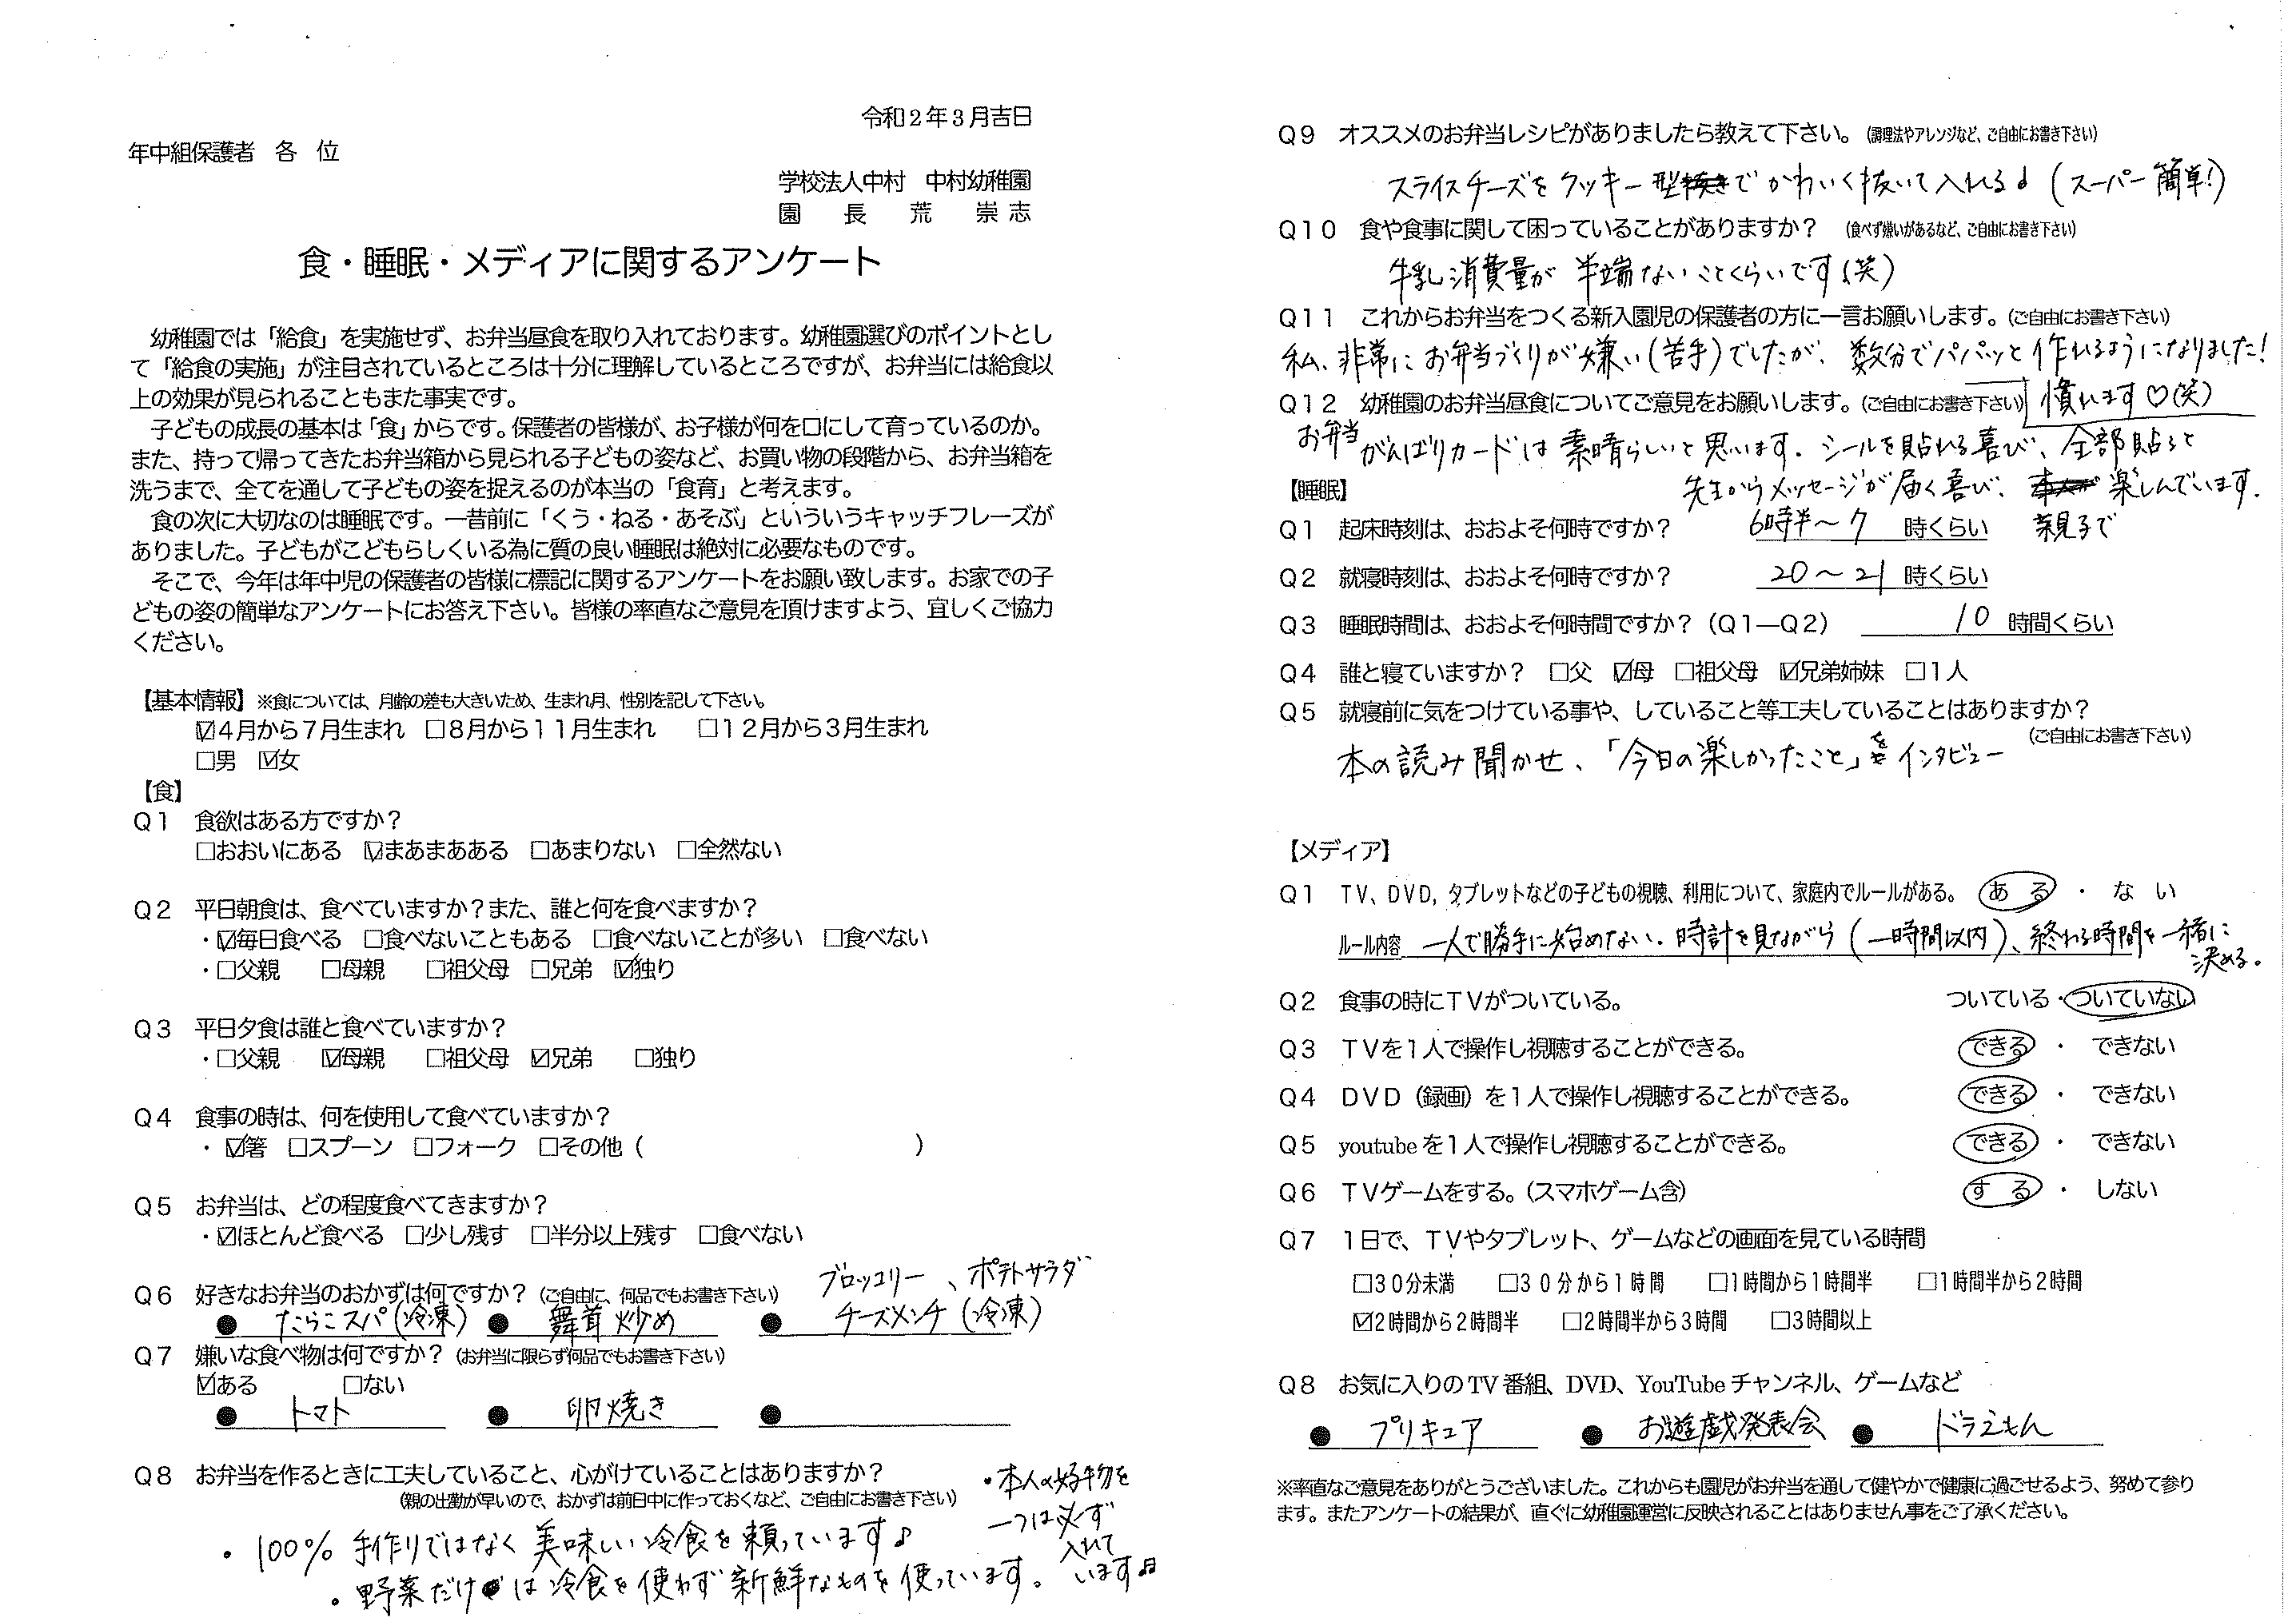 令和2年3月吉日
年中組保護者　各　位
学校法人中村　中村幼稚園
園　長　荒　崇志
食・睡眠・メディアに関するアンケート
幼稚園では「給食」を実施せず、お弁当昼食を取り入れております。幼稚園選びのポイントとし
て「給食の実施」が注目されているところは十分に理解しているところですが、お弁当には給食以
上の効果が見られることもまた事実です。
子どもの成長の基本は「食」からです。保護者の皆様が、お子様が何を口にして育っているのか。
また、持って帰ってきたお弁当箱から見られる子どもの姿など、お買い物の段階から、お弁当箱を
洗うまで、全てを通して子どもの姿を捉えるのが本当の「食育」と考えます。
食の次に大切なのは睡眠です。一昔前に「くう・ねる・あそぶ」といういうキャッチフレーズが
ありました。子どもがこどもらしくいる為に質の良い睡眠は絶対に必要なものです。
そこで、今年は年中児の保護者の皆様に標記に関するアンケートをお願い致します。お家での子
どもの姿の簡単なアンケートにお答え下さい。皆様の率直なご意見を頂けますよう、宜しくご協力
ください。
【基本情報】※食については、月齢の差も大きいため、生まれ月、性別を記して下さい。
☑4月から7月生まれ　□8月から11月生まれ　□12月から3月生まれ
□男　☑女
【食】
Q1　食欲はある方ですか？
□おおいにある　☑まあまあある　□あまりない　□全然ない
Q2　平日朝食は、食べていますか？また、誰と何を食べますか？
・☑毎日食べる　□食べないこともある　□食べないことが多い　□食べない
・□父親　□母親　□祖父母　□兄弟　☑独り
Q3　平日夕食は誰と食べていますか？
・□父親　☑母親　□祖父母　☑兄弟　□独り
Q4　食事の時は、何を使用して食べていますか？
・☑箸　□スプーン　□フォーク　□その他（　　　）
Q5　お弁当は、どの程度食べてきますか？
・☑ほとんど食べる　□少し残す　□半分以上残す　□食べない
Q6　好きなお弁当のおかずは何ですか？（ご自由に、何品でもお書き下さい）　ブロッコリー、ポテトサラダ
●　たらこスパ（冷凍）　●　舞茸炒め　●　チーズメンチ（冷凍）
Q7　嫌いな食べ物は何ですか？（お弁当に限らず何品でもお書き下さい）
☑ある　□ない
●　トマト　●　卵焼き　●
Q8　お弁当を作るときに工夫していること、心がけていることはありますか？
（親の出勤が早いので、おかずは前日中に作っておくなど、ご自由にお書き下さい）
・100％手作りではなく美味しい冷食を頼っています♪
・野菜だけは冷食を使わず新鮮なものを使っています。
・本人の好物を
一つは必ず
入れて
います♬
Q9　オススメのお弁当レシピがありましたら教えて下さい。（調理法やアレンジなど、ご自由にお書き下さい）
スライスチーズをクッキー型でかわいく抜いて入れる♪（スーパー簡単！）
Q10　食や食事に関して困っていることがありますか？　（食べず嫌いがあるなど、ご自由にお書き下さい）
牛乳消費量が半端ないことくらいです（笑）
Q11　これからお弁当をつくる新入園児の保護者の方に一言お願いします。（ご自由にお書き下さい）
私、非常にお弁当づくりが嫌い（苦手）でしたが、数分でパパッと作れるようになりました！
慣れます♡（笑）
Q12　幼稚園のお弁当昼食についてご意見をお願いします。（ご自由にお書き下さい）
お弁当がんばりカードは素晴らしいと思います。シールを貼れる喜び、全部貼ると
先生からメッセージが届く喜び、親子で楽しんでいます。
【睡眠】
Q1　起床時刻は、おおよそ何時ですか？　6時半〜7　時くらい
Q2　就寝時刻は、おおよそ何時ですか？　20〜21　時くらい
Q3　睡眠時間は、おおよそ何時間ですか？（Q1―Q2）　10　時間くらい
Q4　誰と寝ていますか？　□父　☑母　□祖父母　☑兄弟姉妹　□1人
Q5　就寝前に気をつけている事や、していること等工夫していることはありますか？
（ご自由にお書き下さい）
本の読み聞かせ、「今日の楽しかったこと」をインタビュー
【メディア】
Q1　TV、DVD，タブレットなどの子どもの視聴、利用について、家庭内でルールがある。　ある・ない
ルール内容　一人で勝手に始めない。時計を見ながら（一時間以内）、終わる時間を一緒に
決める。
Q2　食事の時にTVがついている。　ついている・ついていない
Q3　TVを1人で操作し視聴することができる。　できる・できない
Q4　DVD（録画）を1人で操作し視聴することができる。　できる・できない
Q5　youtubeを1人で操作し視聴することができる。　できる・できない
Q6　TVゲームをする。（スマホゲーム含）　する・しない
Q7　1日で、TVやタブレット、ゲームなどの画面を見ている時間
□30分未満　□30分から1時間　□1時間から1時間半　□1時間半から2時間
☑2時間から2時間半　□2時間半から3時間　□3時間以上
Q8　お気に入りのTV番組、DVD、YouTubeチャンネル、ゲームなど
●　プリキュア　●　お遊戯発表会　●　ドラえもん
※率直なご意見をありがとうございました。これからも園児がお弁当を通して健やかで健康に過ごせるよう、努めて参り
ます。またアンケートの結果が、直ぐに幼稚園運営に反映されることはありません事をご了承ください。